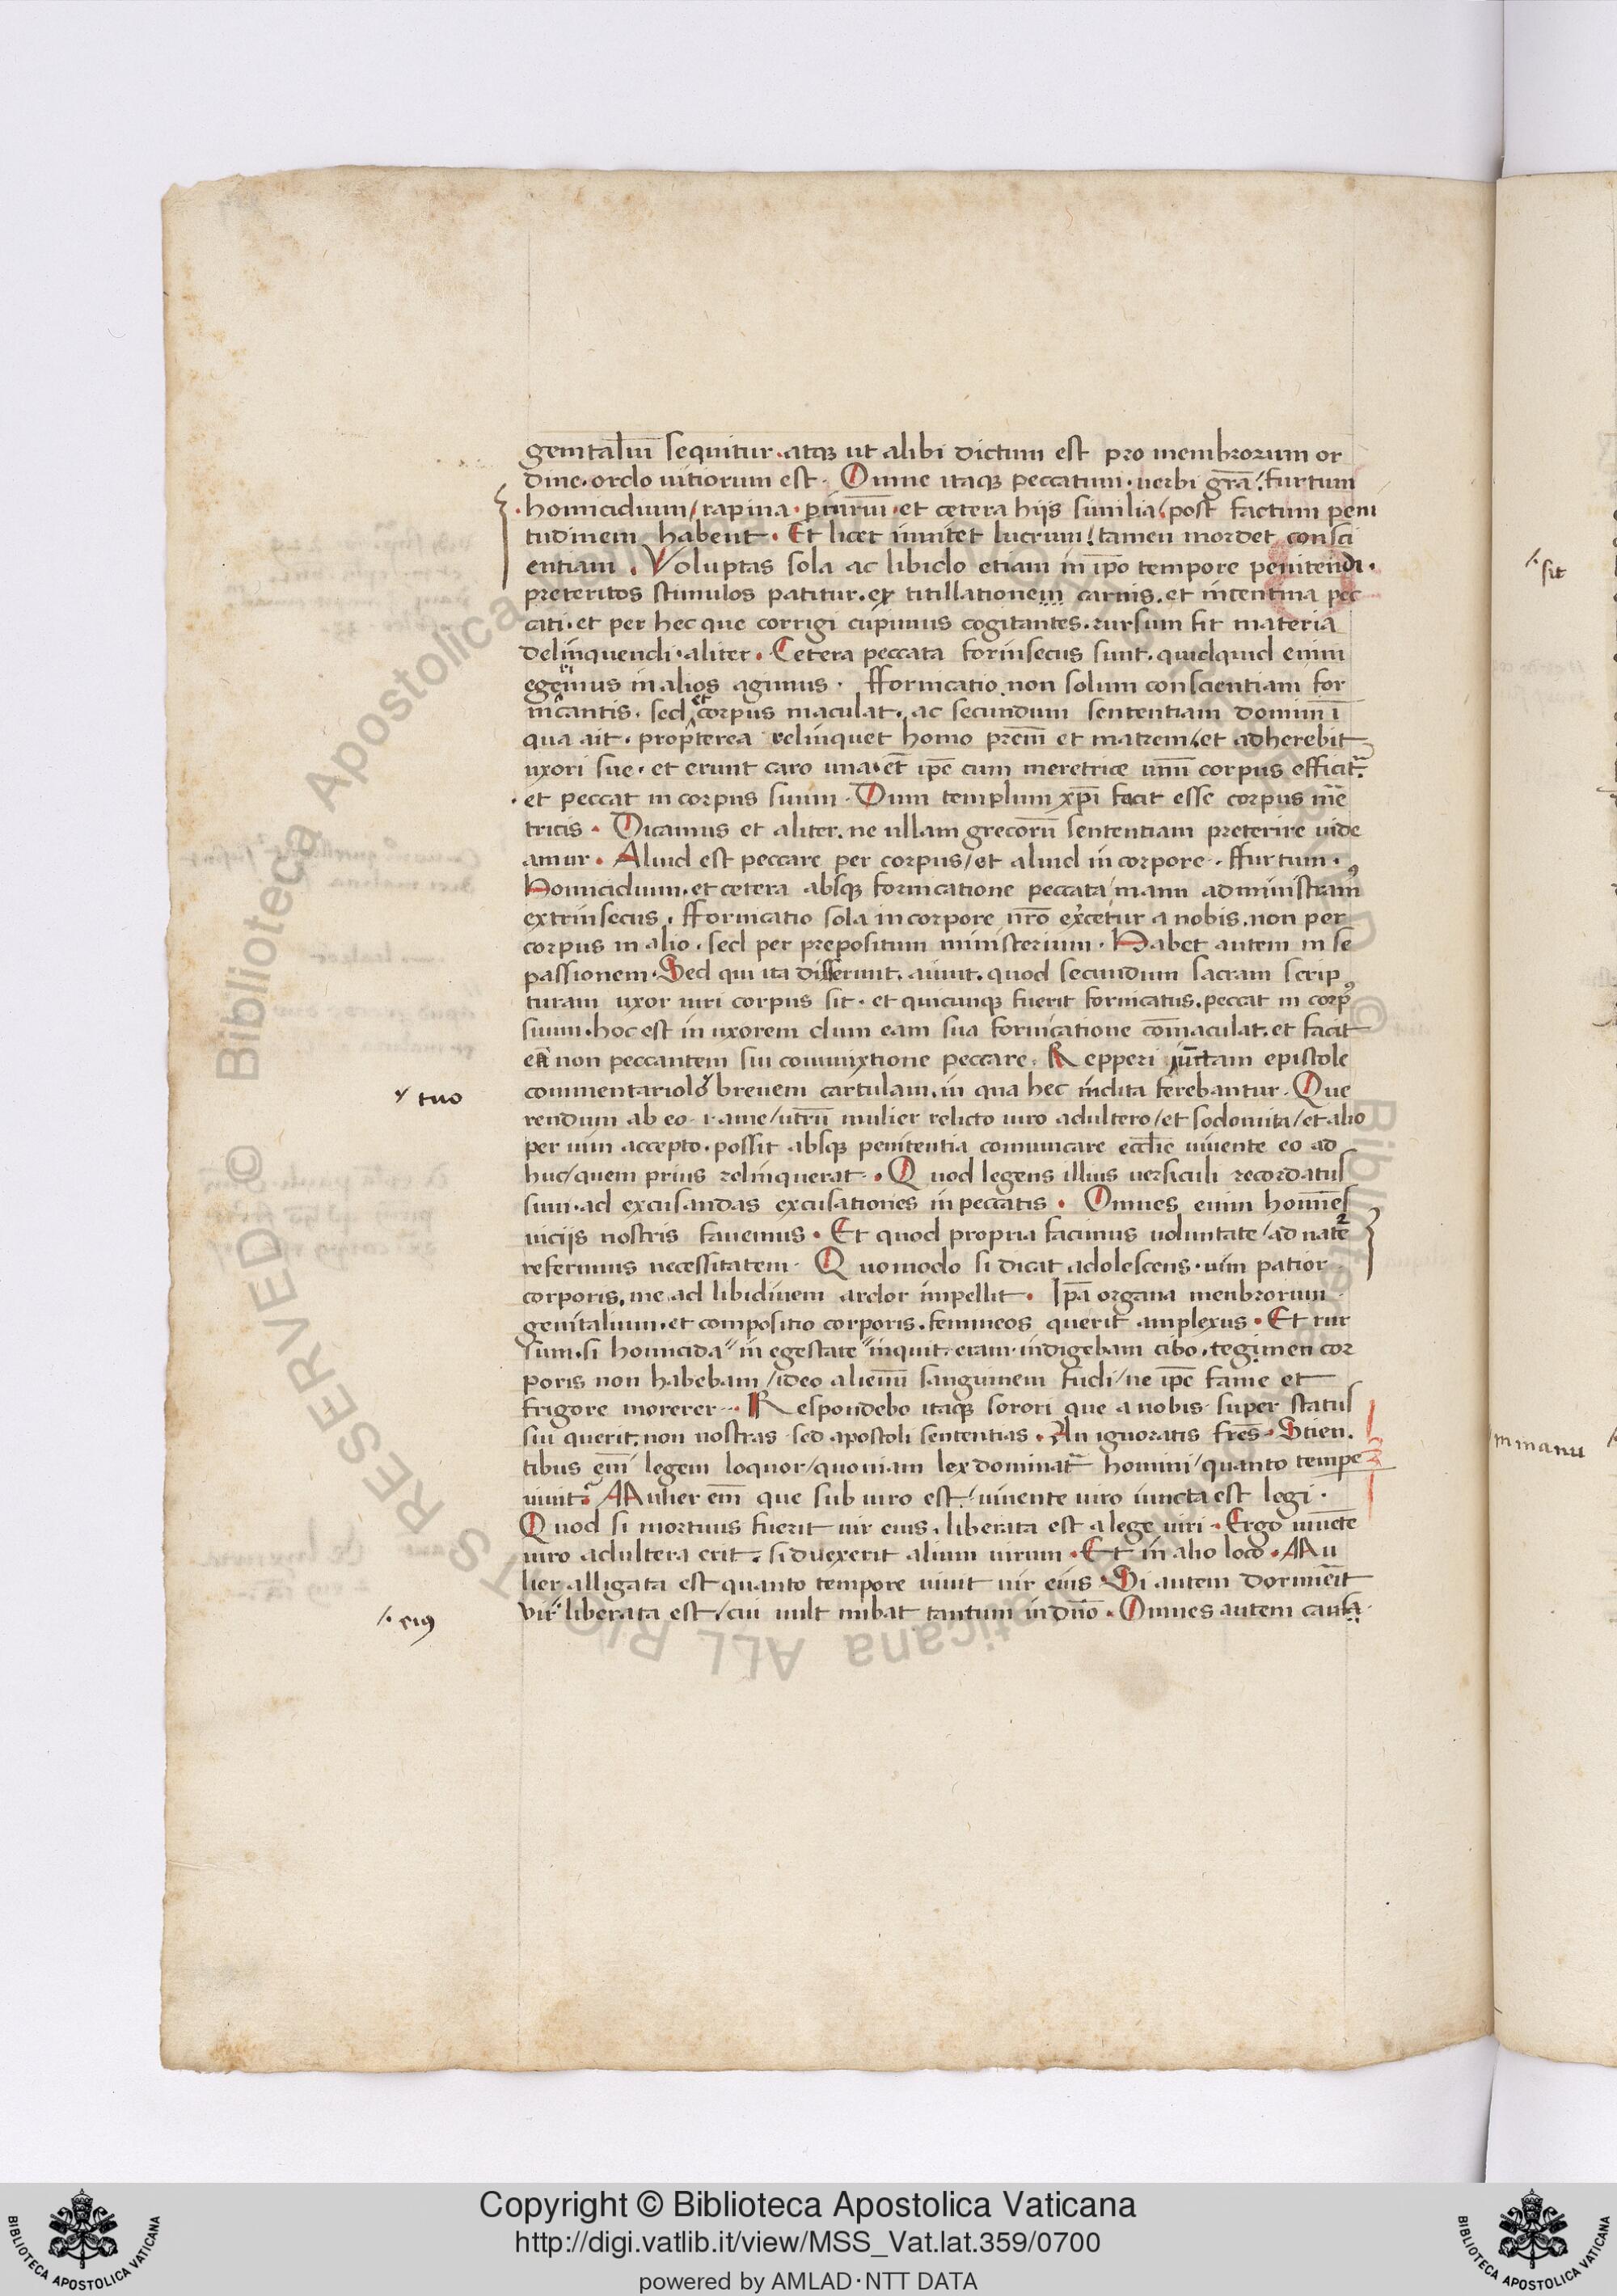 genitaliū sequitur . atqꝫ ut alibi dictum est pro membrorum or
dine . ordo uitiorum est . Omne itaqꝫ peccatum . uerbi grā . furtum
homicidium / rapina . piuriū . et cetera hijs similia / post factum peni
tudinem habent . Et licet inuitet lucrum / tamen mordet consci
entiam . Voluptas sola ac libido etiam in ipō tempore penitendi .
preteritos stimulos patitur . et titillationem carnis . et incentiua pec
cati . et per hec que corrigi cupimus cogitantes . rursum fit materia
delinquendi . aliter . Cetera peccata forinsecus sunt . quidquid enim
egerimus in alios agimus . fornicatio non solum conscientiam for
nicantis . sed et corpus maculat . ac secundum sententiam domini
qua ait . propterea relinquet homo prem̄ et matrem . et adherebit
uxori sue . et erunt caro una . et ipē cum meretrice unū corpus efficit᷑
et peccat in corpus suum . Dum templum xp̄i facit esse corpus me͞
tricis . Dicamus et aliter . ne ullam grecorū sententiam preterire uide
amur . Aliud est peccare per corpus / et aliud in corpore . ffurtum .
Homicidium . et cetera absqꝫ fornicatione peccata manu administramꝰ
extrinsecus . ffornicatio sola in corpore nr̄o ex̓cetur a nobis . non per
corpus in alio . sed per prepositum ministerium . Habet autem in se
passionem . Sed qui ita disserunt . aiunt . quod secundum sacram scrip
turam uxor uiri corpus sit . et quicunqꝫ fuerit fornicatus . peccat in corpꝰ
suum . hoc est in uxorem dum eam sua fornicatione cōmaculat . et facit
eā non peccantem sui commixtione peccare . Repperi iunctam epistole
commentariolo breuem cartulam . in qua hec indita ferebantur . Que
rendum ab eo . i a me / utrū mulier relicto uiro adultero / et sodomita / et alio
per uim accepto . possit absqꝫ penitentia comunicare ecclīe uiuente eo ad
huc / quem prius relinquerat . Quod legens illius uersiculi recordatus
sum . ad excusandas excusationes in peccatis . Omnes enim homīes
uicijs nostris fauemus . Et quod propria facimus uoluntate / ad nat᷑e
referimus necessitatem . Quomodo si dicat adolescens . uim patior
corporis . me ad libidinem ardor impellit . Ipā organa membrorum
genitalium . et compositio corporis . femineos querit amplexus . Et rur
sum . si homicida " in egestate " inquit . eram . indigebam cibo . tegimen cor
poris non habebam / ideo alienū sanguinem fudi / ne ipē fame et
frigore morerer . Respondebo itaqꝫ sorori que a nobis super status
sui querit . non nostras sed apostoli sententias . An ignoratis frēs . Scien
tibus em̄ legem loquor / quoniam lex dominat᷑ homini / quanto tempe
uiuit . Mulier em̄ que sub uiro est / uiuente uiro iuncta est legi .
Quod si mortuus fuerit uir eius . liberata est a lege uiri . Ergo uiuēte
uiro adultera erit . si duxerit alium uirum . Et in alio loco . Mu
lier alligata est quanto tempore uiuit uir eius . Si autem dormieīt
vir liberata est / cui uult nubat tantum in dn̄o . Omnes autem causa
tuo
eiꝰ
sit
in manu
Copyright © Biblioteca Apostolica Vaticana
http://digi.vatlib.it/view/MSS_Vat.lat.359/0700
powered by AMLAD·NTT DATA
BIBLIOTECA APOSTOLICA VATICANA
BIBLIOTECA APOSTOLICA VATICANA